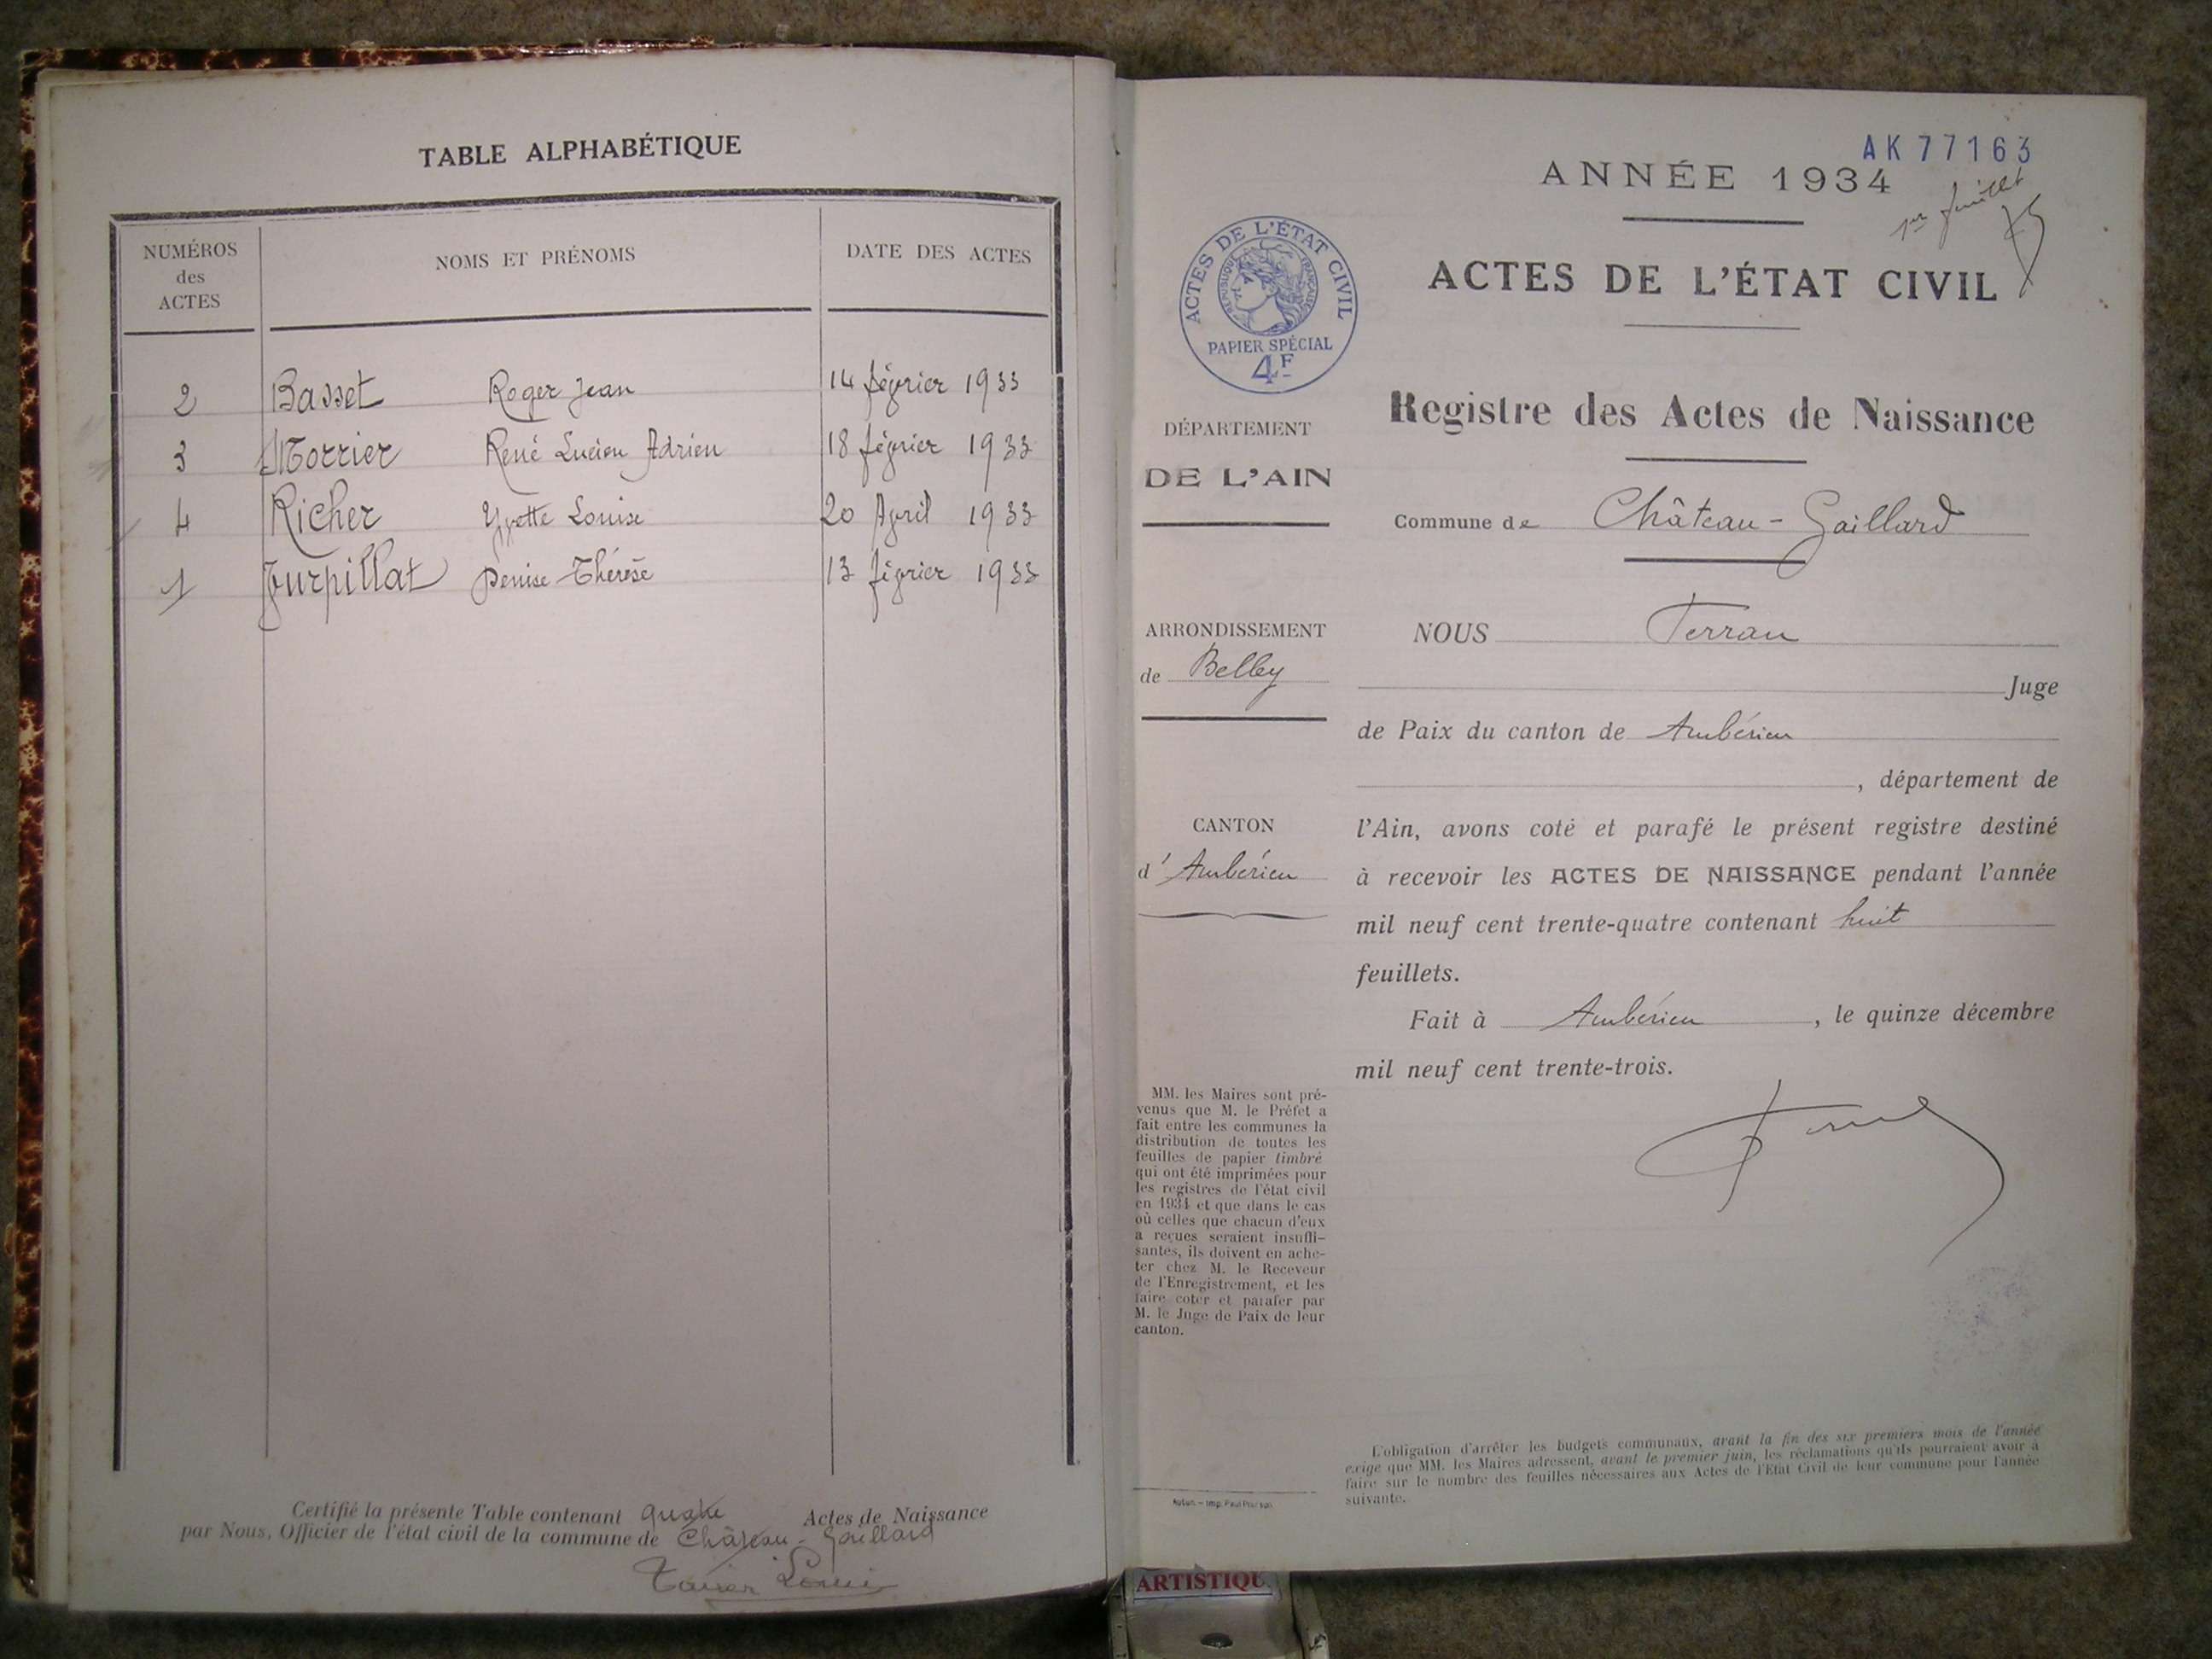 TABLE ALPHABÉTIQUE
NUMÉROS des ACTES
NOMS ET PRÉNOMS
DATE DES ACTES
2 Basset Roger Jean 14 février 1933
3 Morrier René Lucien Adrien 18 février 1933
4 Richer Yvette Louise 20 Avril 1933
1 Turpillat Denise Thérèse 13 février 1933
Certifié la présente Table contenant quatre Actes de Naissance
par Nous, Officier de l'état civil de la commune de Château-Gaillard
AK 77163
ANNÉE 1934
1er feuillet
ACTES DE L'ÉTAT CIVIL
ACTES DE L'ÉTAT CIVIL
RÉPUBLIQUE FRANÇAISE
PAPIER SPÉCIAL
4F
Registre des Actes de Naissance
DÉPARTEMENT
DE L'AIN
Commune de Château-Gaillard
ARRONDISSEMENT
de Belley
CANTON
d'Ambérieu
NOUS Ferran
Juge
de Paix du canton de Ambérieu
, département de
l'Ain, avons coté et parafé le présent registre destiné
à recevoir les ACTES DE NAISSANCE pendant l'année
mil neuf cent trente-quatre contenant huit
feuillets.
Fait à Ambérieu, le quinze décembre
mil neuf cent trente-trois.
MM. les Maires sont pré-
venus que M. le Préfet a
fait entre les communes la
distribution de toutes les
feuilles de papier timbré
qui ont été imprimées pour
les registres de l'état civil
en 1934 et que dans le cas
où celles que chacun d'eux
a reçues seraient insuffi-
santes, ils doivent en ache-
ter chez M. le Receveur
de l'Enregistrement, et les
faire coter et parafer par
M. le Juge de Paix de leur
canton.
L'obligation d'arrêter les budgets communaux, avant la fin des six premiers mois de l'année
exige que MM. les Maires adressent, avant le premier juin, les réclamations qu'ils pourraient avoir à
faire sur le nombre des feuilles nécessaires aux Actes de l'Etat Civil de leur commune pour l'année
suivante.
Autun. — Imp. Paul
ARTISTIQU